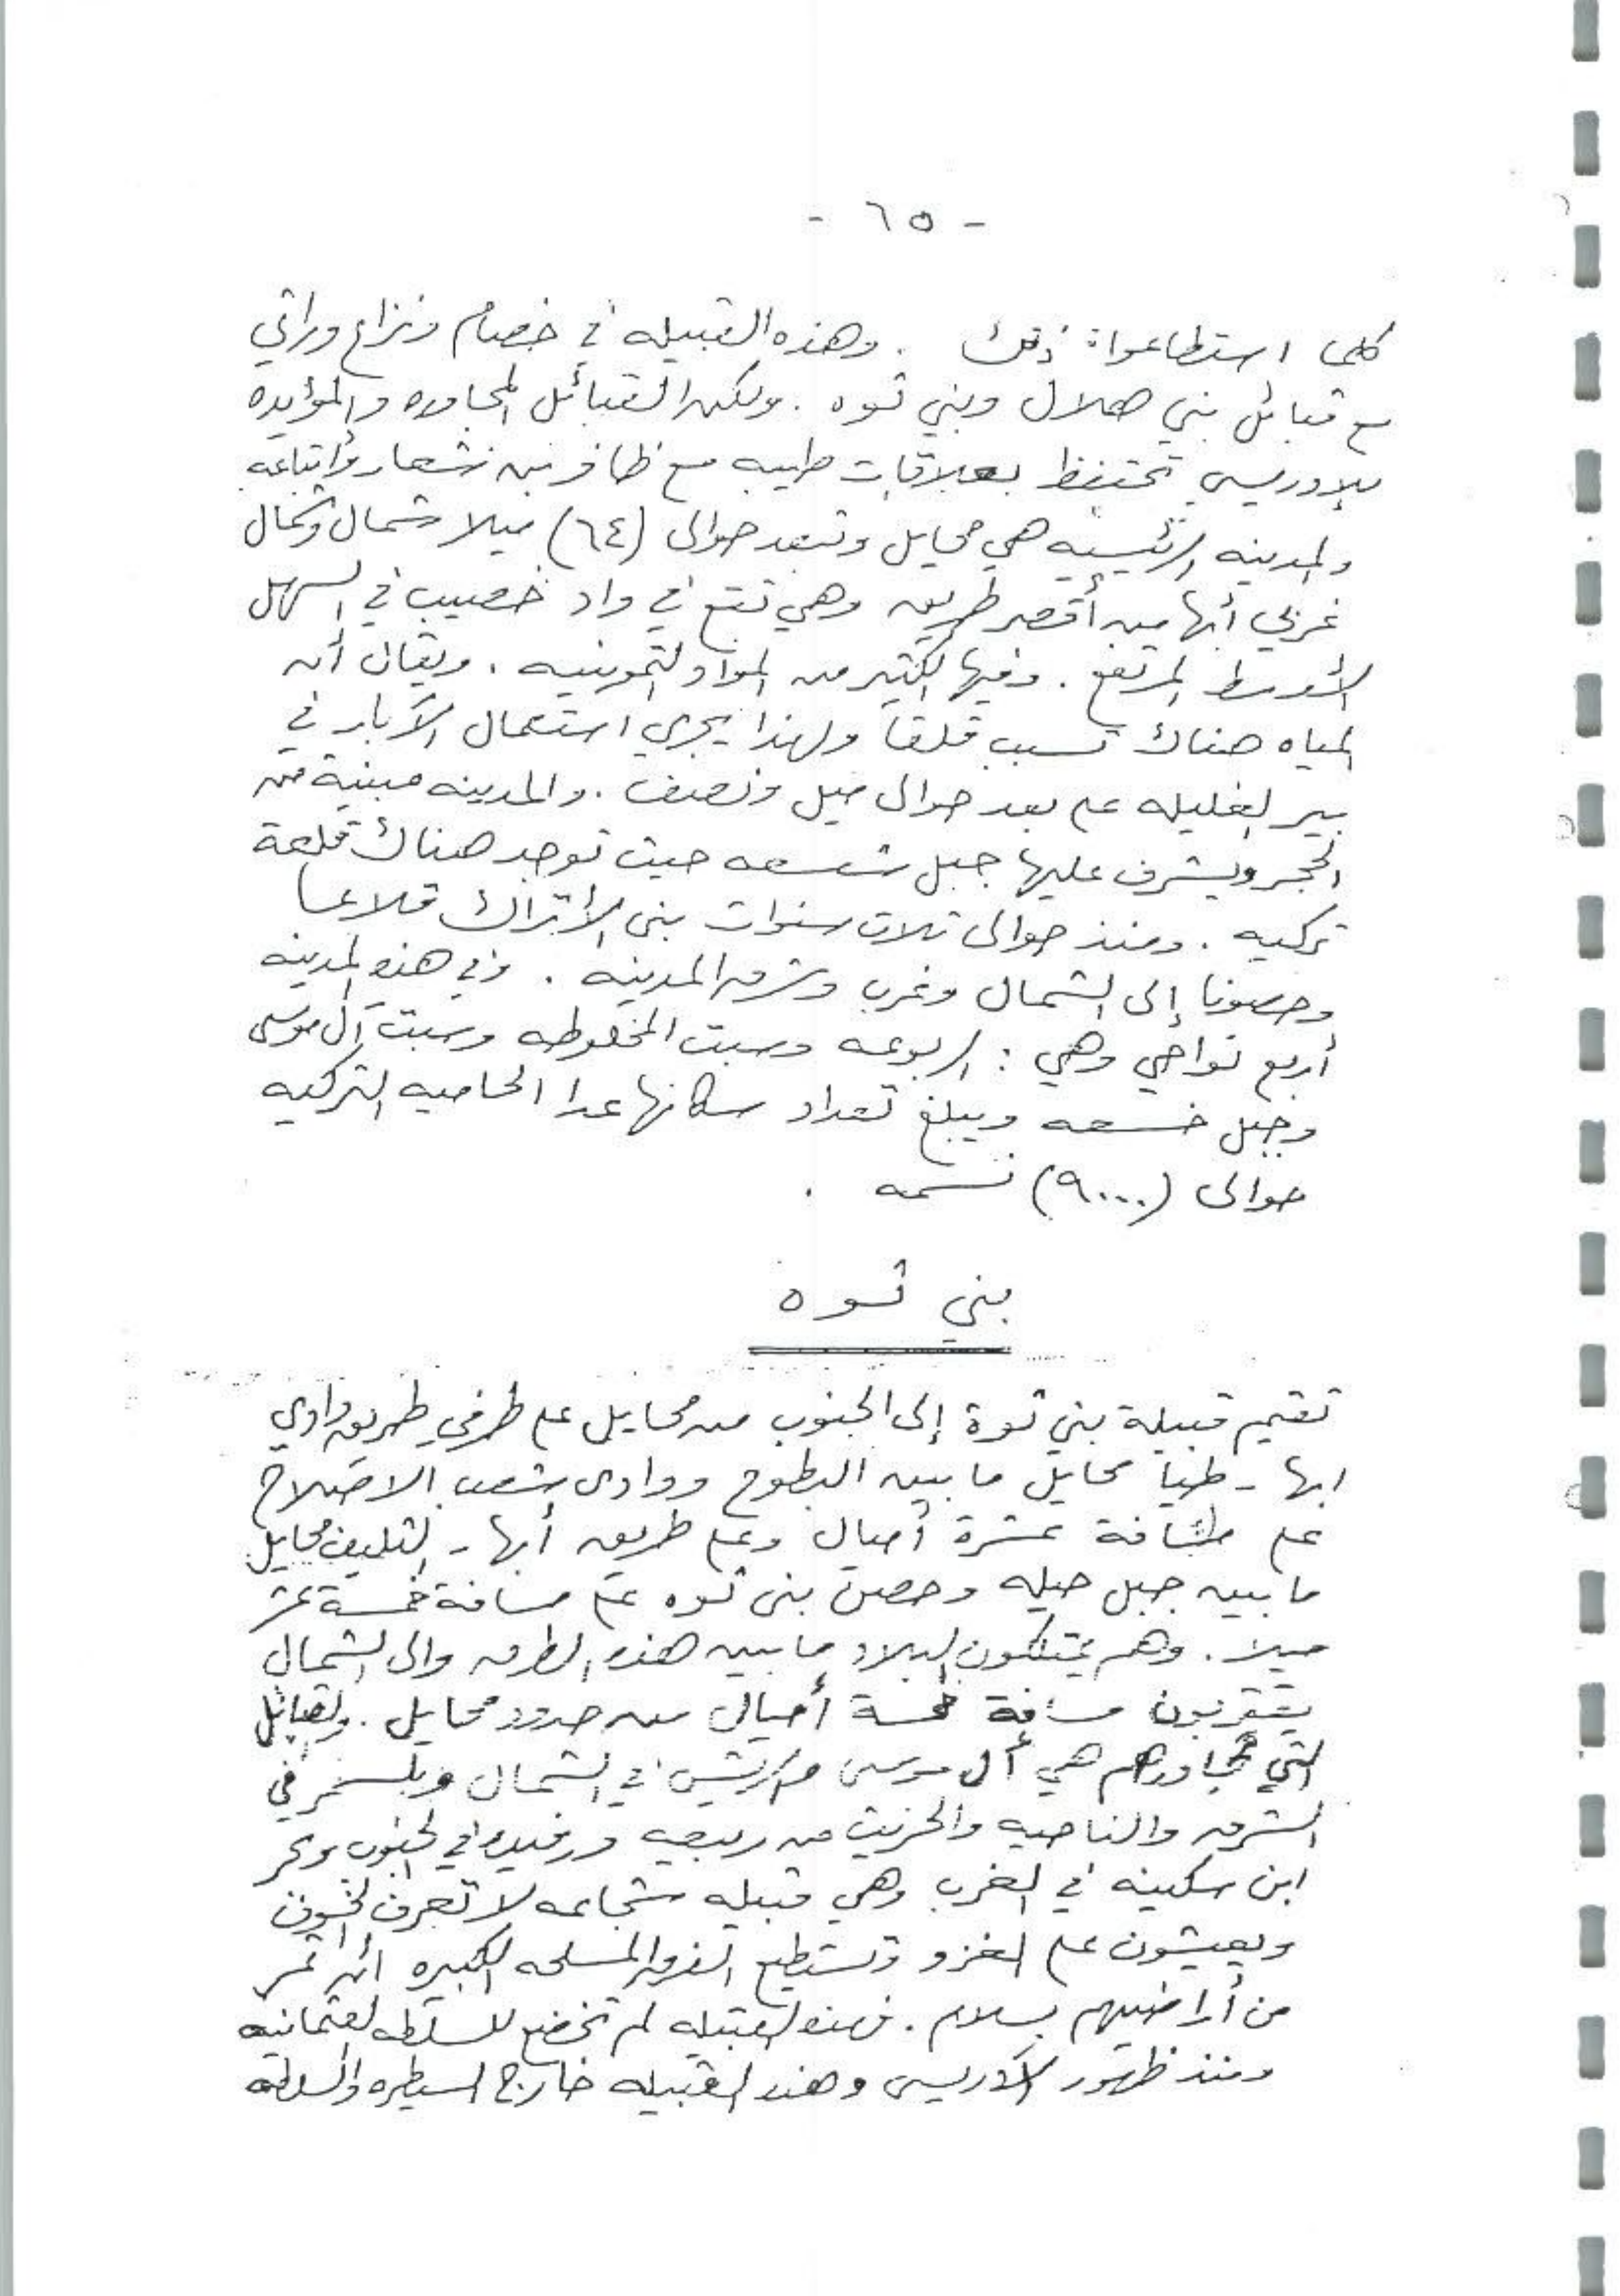 - ٦٥ -
كلما استطاعوا ذلك . وهذه القبيله في خصام ونزاع وراثي
مع قبائل بني هلال وبني ثوه . ولكن القبائل المجاوره والمؤيده
للإدريسي تحتفظ بعلاقات طيبه مع ظافر بن شعار وأتباعه
والمدينه الرئيسيه هي محايل وتبعد حوالى (٦٤) ميلا شمال وشمال
غربي أبها من أقصر طريق وهي تقع في واد خصيب في السهل
الأوسط المرتفع . وفيها الكثير من المواد التموينيه . ويقال أن
المياه هناك تسبب قلقاً ولهذا يجري استعمال الآبار في
بير الغليله على بعد حوالى ميل ونصف . والمدينه مبنية من
الحجر ويشرف عليها جبل شسعه حيث توجد هناك قلعة
تركيه . ومنذ حوالى ثلاث سنوات بنى الأتراك قلاعا
وحصونا إلى الشمال وغرب وشرق المدينه . وفي هذه المدينه
أربع نواحي وهي : الربوعه وسبت المخلوطه وسبت آل موسى
وجبل خسعه ويبلغ تعداد سكانها عدا الحاميه التركيه
حوالى (٩٠٠٠) نسمه .
بني ثوه
تقيم قبيلة بني ثوة إلى الجنوب من محايل على طرفي طريق وادي
ابها - طيا محايل ما بين البطوح ووادى شعب الاصلاح
على مسافة عشرة أميال وعلى طريق أبها - التليف محايل
ما بين جبل حيله وحصن بنى ثوه على مسافة خمسة عشر
ميلا . وهم يمتلكون البلاد ما بين هذه الطرق والى الشمال
يقتربون مسافة خمسة أميال من حدود محايل . والقبائل
التي تجاورهم هي آل موسى والريش في الشمال وبلسمر في
الشرق والناحيه والحزيت من ربيعه ورفيده في الجنوب وبحر
ابن سكينه في الغرب وهي قبيله شجاعه لا تعرف الخوف
ويعيشون على الغزو وتستطيع الفرق المسلحه الكبيره أن تمر
من أراضيهم بسلام . فهذه القبيله لم تخضع للسلطه العثمانيه
ومنذ ظهور الادريسى وهذه القبيله خارج السيطره والسلطه